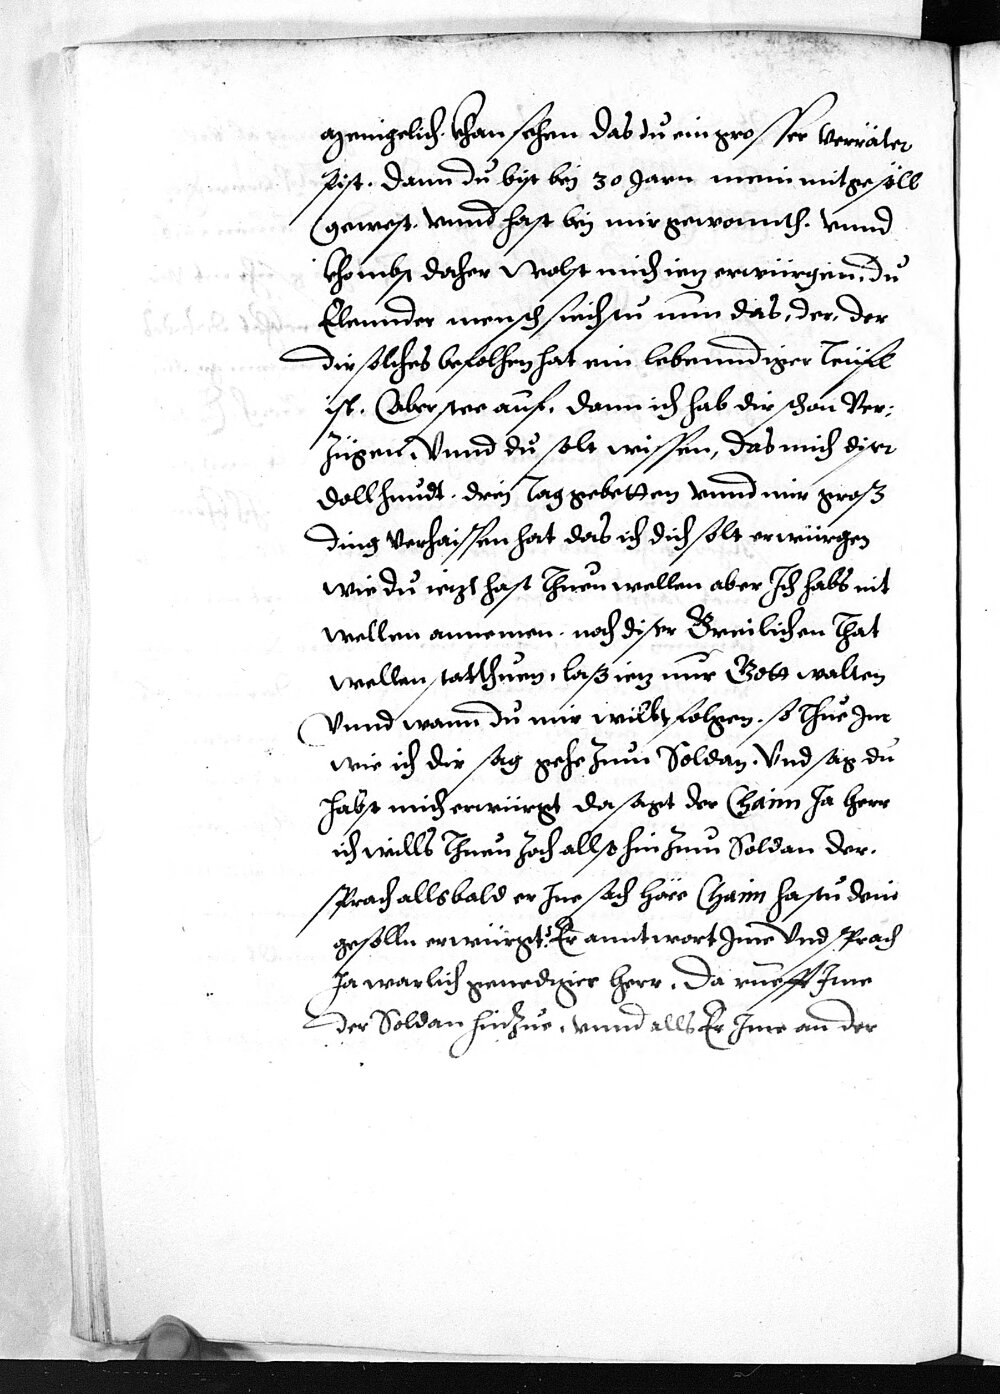 menigelich khan sehen das du ein grosser Verräter
pist. dann du bist bej 30 Jarn mein mitgesöll
gewest. vnnd hast bej mir gewonnth. vnnd
khombst daher wolst mich iez erwürgen, du
Elennder mensch siehstu nun das, der, der
dir solches befolhen hat ein lebenndiger Teüfl
ist. Aber stee auf, dann ich hab dir schon Ver-
zügen, Vnnd du solt wissen, das mich diser
doll hundt. drej Tag gebetten vnnd mir groß
ding verhaissen hat das ich dich solt erwürgen
wie du iezt hast Thuen wellen aber Ich habs nit
wellen annemen. noch diser Greilichen That
wellen statthuen, laß iez nur Gott walten
Vnnd wann du mir wilst folgen. so Thue Im
wie ich dir sag gehe zum Soldan, Vnd sag du
habst mich erwürgt da sagt der Chaim Ja herr
ich wills Thuen zoch allso hin zum Soldan der.
sprach allsbald er Ine sach Höre Chaim hastu dein
geselln erwürgt? Er anntwort Ime Vnd sprach
Ja warlich genediger herr. Da rüefft Ime
der Soldan hinzue, vnnd alls Er Ime an der